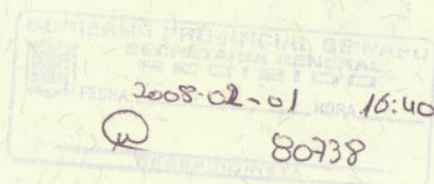 GOBIERNO PROVINCIAL DE NAPO
SECRETARIA GENERAL
RECIBIDO
FECHA 2008-02-01 HORA 16:40
80738
RECEPCIONISTA